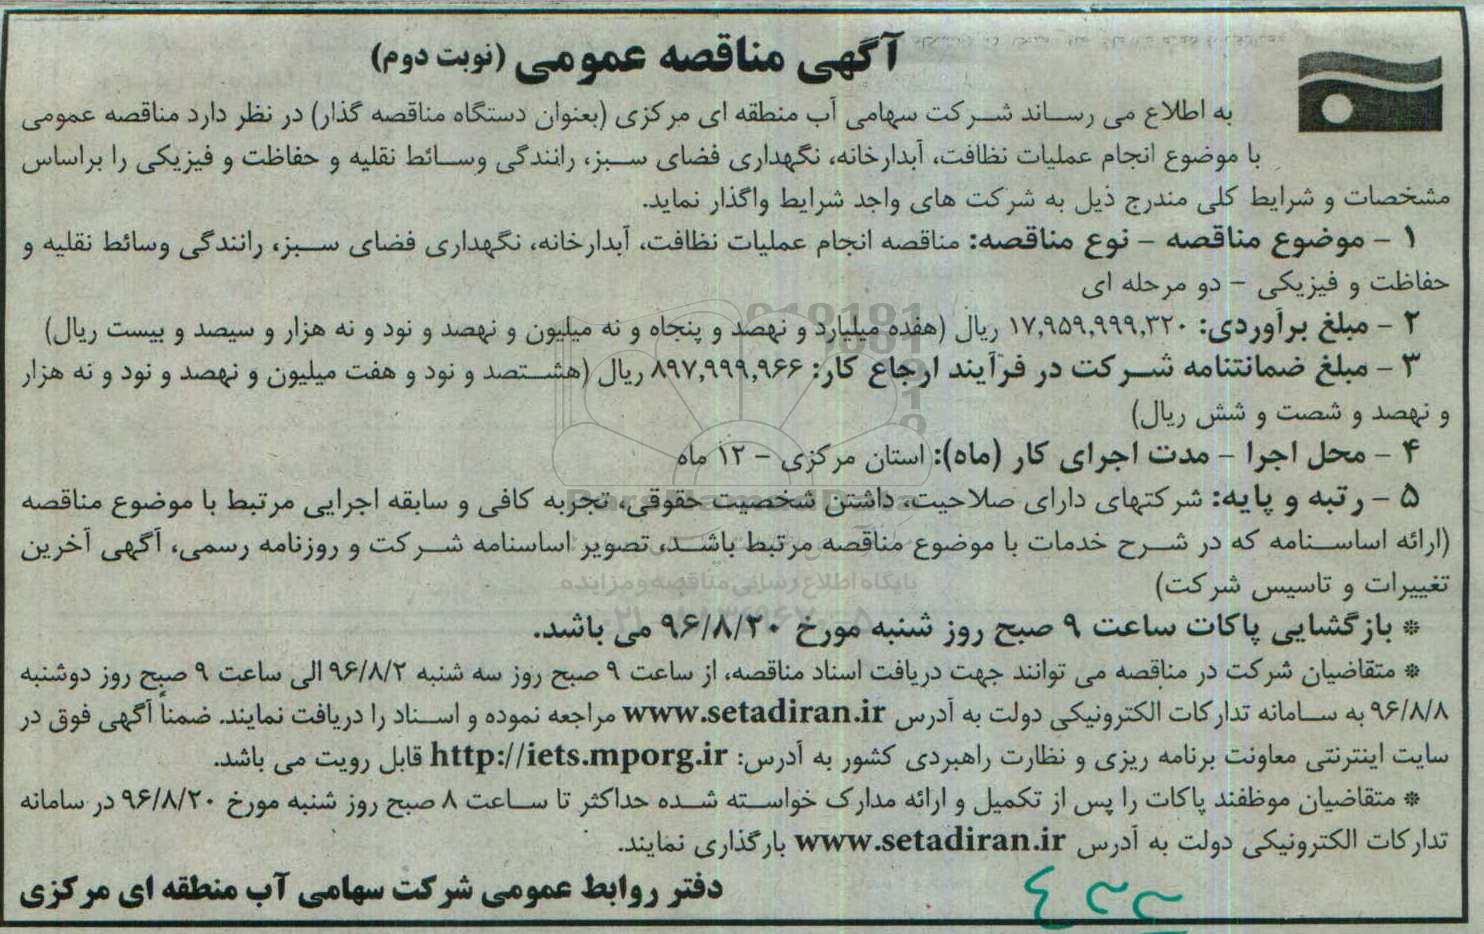 آگهی مناقصه عمومی (نوبت دوم)
به اطلاع می رساند شرکت سهامی آب منطقه ای مرکزی (بعنوان دستگاه مناقصه گذار) در نظر دارد مناقصه عمومی
با موضوع انجام عملیات نظافت، آبدارخانه، نگهداری فضای سبز، رانندگی وسائط نقلیه و حفاظت و فیزیکی را براساس
مشخصات و شرایط کلی مندرج ذیل به شرکت های واجد شرایط واگذار نماید.
۱ - موضوع مناقصه - نوع مناقصه: مناقصه انجام عملیات نظافت، آبدارخانه، نگهداری فضای سبز، رانندگی وسائط نقلیه و
حفاظت و فیزیکی - دو مرحله ای
۲ - مبلغ برآوردی: ۱۷,۹۵۹,۹۹۹,۳۲۰ ریال (هفده میلیارد و نهصد و پنجاه و نه میلیون و نهصد و نود و نه هزار و سیصد و بیست ریال)
۳ - مبلغ ضمانتنامه شرکت در فرآیند ارجاع کار: ۸۹۷,۹۹۹,۹۶۶ ریال (هشتصد و نود و هفت میلیون و نهصد و نود و نه هزار
و نهصد و شصت و شش ریال)
۴ - محل اجرا - مدت اجرای کار (ماه): استان مرکزی - ۱۲ ماه
۵ - رتبه و پایه: شرکتهای دارای صلاحیت، داشتن شخصیت حقوقی، تجربه کافی و سابقه اجرایی مرتبط با موضوع مناقصه
(ارائه اساسنامه که در شرح خدمات با موضوع مناقصه مرتبط باشد، تصویر اساسنامه شرکت و روزنامه رسمی، آگهی آخرین
تغییرات و تاسیس شرکت)
پایگاه اطلاع رسانی مناقصه و مزایده
* بازگشایی پاکات ساعت ۹ صبح روز شنبه مورخ ۹۶/۸/۲۰ می باشد.
* متقاضیان شرکت در مناقصه می توانند جهت دریافت اسناد مناقصه، از ساعت ۹ صبح روز سه شنبه ۹۶/۸/۲ الی ساعت ۹ صبح روز دوشنبه
۹۶/۸/۸ به سامانه تدارکات الکترونیکی دولت به آدرس www.setadiran.ir مراجعه نموده و اسناد را دریافت نمایند. ضمناً آگهی فوق در
سایت اینترنتی معاونت برنامه ریزی و نظارت راهبردی کشور به آدرس: http://iets.mporg.ir قابل رویت می باشد.
* متقاضیان موظفند پاکات را پس از تکمیل و ارائه مدارک خواسته شده حداکثر تا ساعت ۸ صبح روز شنبه مورخ ۹۶/۸/۲۰ در سامانه
تدارکات الکترونیکی دولت به آدرس www.setadiran.ir بارگذاری نمایند.
دفتر روابط عمومی شرکت سهامی آب منطقه ای مرکزی